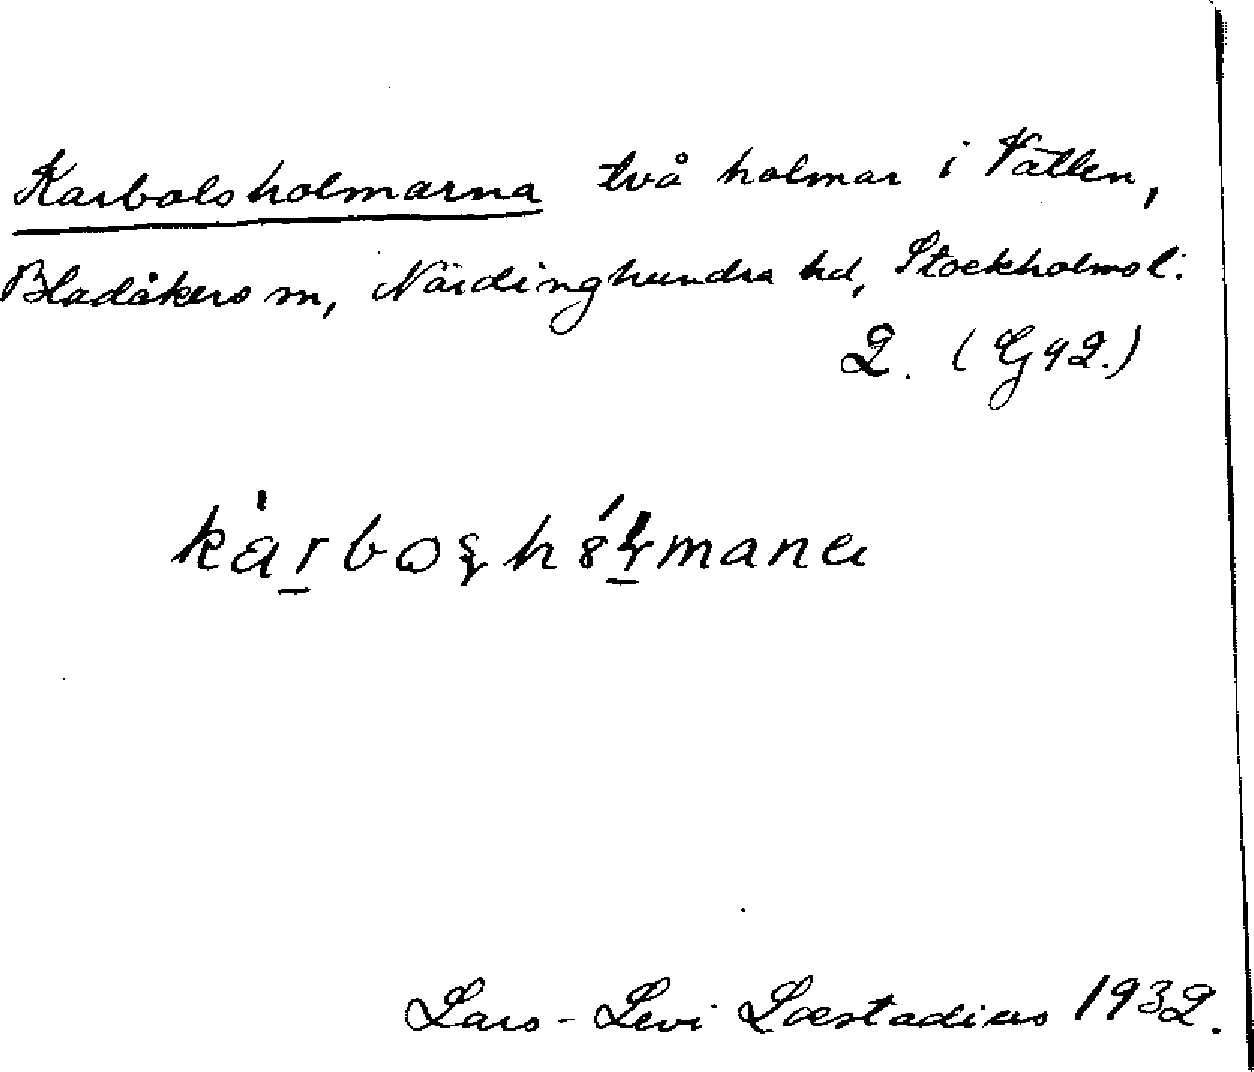 Karbolsholmarna två holmar i Vällen,
Bladåkers sn, Närdinghundra hd, Stockholms l.
2. (G 42.)
karboʂholmana
Lars-Levi Læstadius 1932.